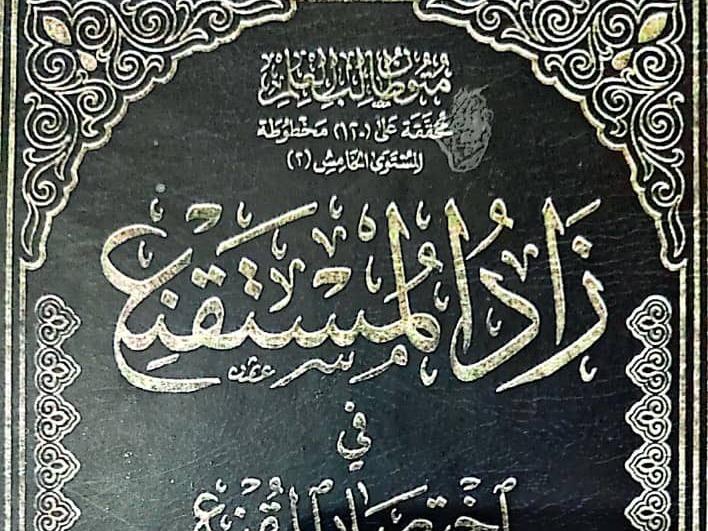 مُتُونُ طَالِبِ العِلْمِ
مُحَقَّقَة عَلَى (١٢٠) مَخْطُوطَة
المُسْتَوَى الخَامِسُ (٢)
زَادُ المُسْتَقْنِعِ
فِي
اخْتِصَارِ المُقْنِعِ